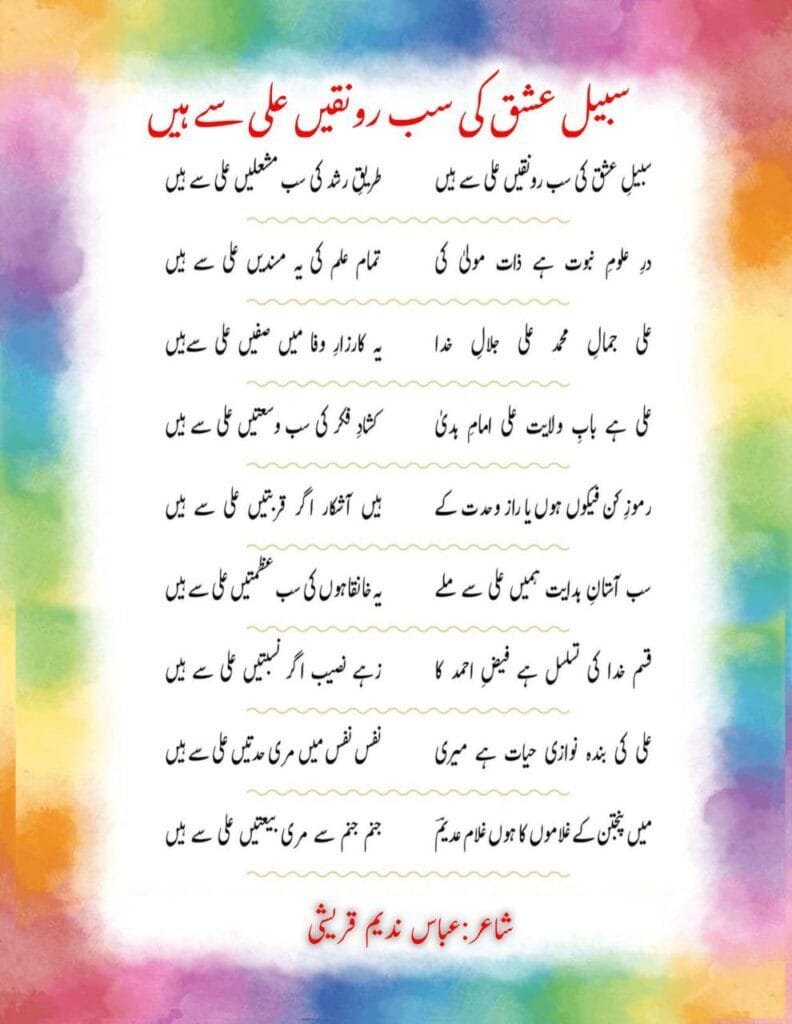 سبیل عشق کی سب رونقیں علی سے ہیں
سبیلِ عشق کی سب رونقیں علی سے ہیں طریقِ رشد کی سب مشعلیں علی سے ہیں
درِ علومِ نبوت ہے ذات مولیٰ کی تمام علم کی یہ مسندیں علی سے ہیں
علی جمالِ محمد علی جلالِ خدا یہ کارزارِ وفا میں صفیں علی سے ہیں
علی ہے بابِ ولایت علی امامِ ہدیٰ کشادِ فکر کی سب وسعتیں علی سے ہیں
رموزِ کن فیکوں ہوں یا راز وحدت کے ہیں آشکار اگر قربتیں علی سے ہیں
سب آستانِ ہدایت ہمیں علی سے ملے یہ خانقاہوں کی سب عظمتیں علی سے ہیں
قسم خدا کی تسلسل ہے فیضِ احمد کا زہے نصیب اگر نسبتیں علی سے ہیں
علی کی بندہ نوازی حیات ہے میری نفس نفس میں مری حدتیں علی سے ہیں
میں پنجتن کے غلاموں کا ہوں غلام عدیمؔ جنم جنم سے مری بیعتیں علی سے ہیں
شاعر:عباس ندیم قریشی